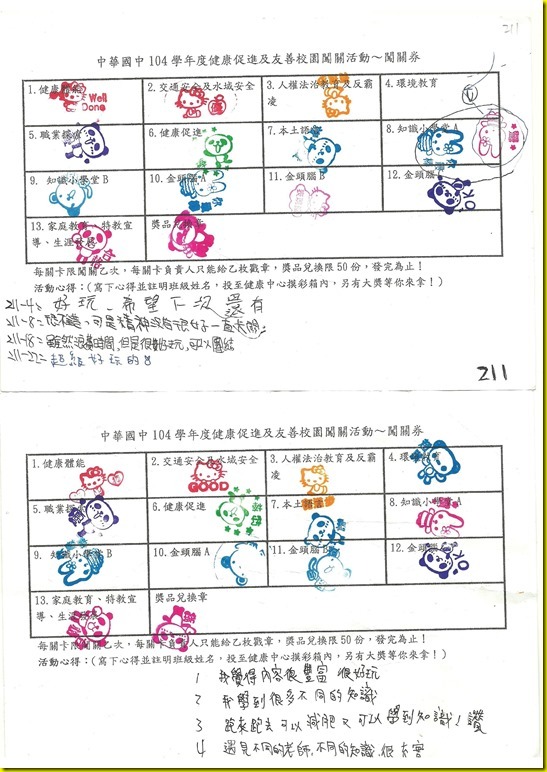 211
中華國中 104 學年度健康促進及友善校園闖關活動～闖關券
1.健康體能
2.交通安全及水域安全
3.人權法治教育及反霸凌
4.環境教育
Well Done
5.職業探索
6.健康促進
7.本土語
8.知識小學堂 A
9. 知識小學堂 B
10.金頭腦 A
11.金頭腦 B
12.金頭腦
13.家庭教育、特教宣導、生涯
獎品兌換章
每關卡限闖關乙次，每關卡負責人只能給乙枚戳章，獎品兌換限 50 份，發完為止！
活動心得：(寫下心得並註明班級姓名，投至健康中心摸彩箱內，另有大獎等你來拿！)
211-4：好玩、希望下次還有
211-8：可是精神沒有很好一直卡關
211-18：雖然浪費時間，但是很好玩，可以團結
211-22：超級好玩的
211
中華國中 104 學年度健康促進及友善校園闖關活動～闖關券
1.健康體能
2.交通安全及水域安全
3.人權法治教育及反霸凌
4.環境教育
GOOD
5.職業探索
6.健康促進
7.本土語
8.知識小學堂 A
9. 知識小學堂 B
10.金頭腦 A
11.金頭腦 B
12.金頭腦
13.家庭教育、特教宣導、生涯
獎品兌換章
每關卡限闖關乙次，每關卡負責人只能給乙枚戳章，獎品兌換限 50 份，發完為止！
活動心得：(寫下心得並註明班級姓名，投至健康中心摸彩箱內，另有大獎等你來拿！)
1 我覺得內容很豐富 很好玩
2 我學到很多不同的知識
3 跑來跑去可以減肥又可以學到知識！讚
4 遇見不同的老師,不同的知識,很充實